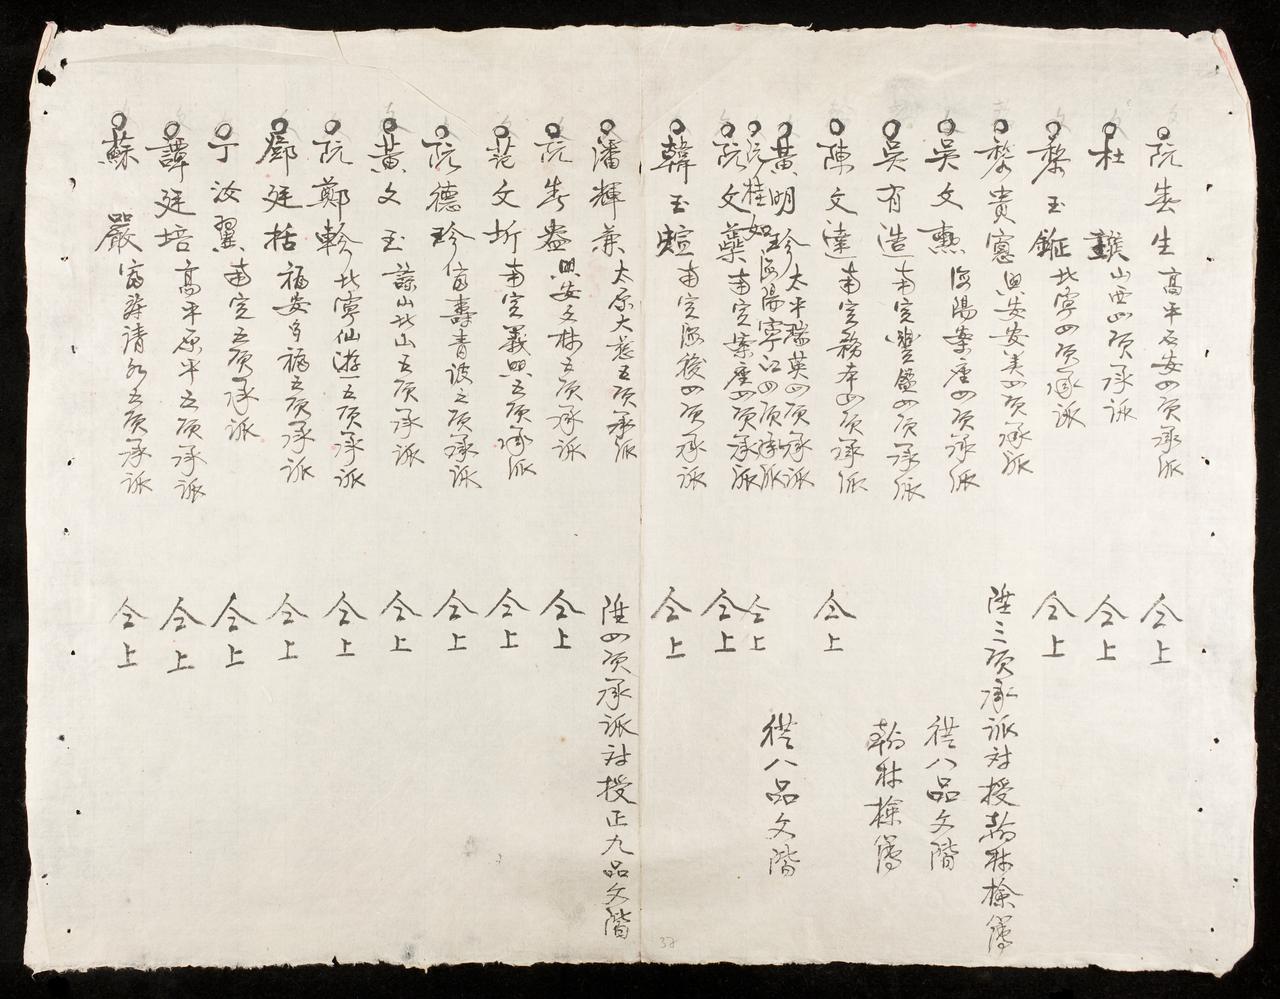 阮春生高平石安四項承派 仝上
杜 山西四項承派 仝上
黎玉鉦北寧四項承派 仝上
黎貴憲興安安美四項承派 陞三項承派対授翰林檢簿
吳文勲海陽 四項承派 從八品文階
吳有造南定豐盈四項承派 翰林檢簿
陳文達南定務本四項承派 仝上
黃明珍太平瑞英四項承派 從八品文階
阮桂如海陽寧江四項承派 仝上
阮文蘂南定 四項承派 仝上
韓玉煊南定海後四項承派 仝上
潘輝兼太原大慈五項承派 陞四項承派対授正九品文階
阮 興安文林五項承派 仝上
范文圻南定義興五項承派 仝上
阮德珍富壽青波五項承派 仝上
黃文玉諒山北山五項承派 仝上
阮鄭軫北寧仙游五項承派 仝上
鄧廷括福安多福五項承派 仝上
丁汝翼南定五項承派 仝上
譚廷培高平原平五項承派 仝上
蘇嚴富壽清水五項承派 仝上
37